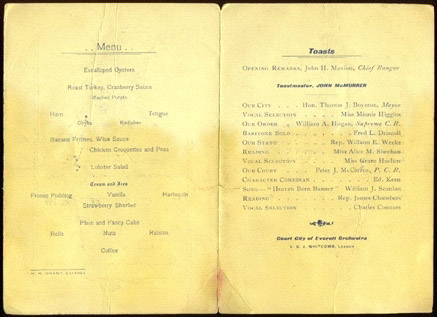 . . Menu . .
Escalloped Oysters
Roast Turkey, Cranberry Sauce
Mashed Potato
Ham Tongue
Olives Radishes
Banana Fritters, Wine Sauce
Chicken Croquettes and Peas
Lobster Salad
Cream and Ices
Frozen Pudding Vanilla Harlequin
Strawberry Sherbet
Plain and Fancy Cake
Rolls Nuts Raisins
Coffee
Toasts
Opening Remarks, John H. Manion, Chief Ranger
Toastmaster, JOHN McMURRER
Our City . . . Hon. Thomas J. Boynton, Mayor
Vocal Selection . . . Miss Minnie Higgins
Our Order . William A. Hogan, Supreme C. R.
Baritone Solo . . . Fred L. Driscoll
Our State . . . Rep. William E. Weeks
Reading . . . Miss Alice M. Sheehan
Vocal Selection . . . Miss Grace
Our Court . . Peter J. McCarren, P. C. R.
Character Comedian . . . Ed. Kenn
Song—"Heaven Born Banner" William J. Scanlan
Reading . . . Rep. James Chambers
Vocal Selection . . . Charles Connors
Court City of Everett Orchestra
Whitcomb, Leader